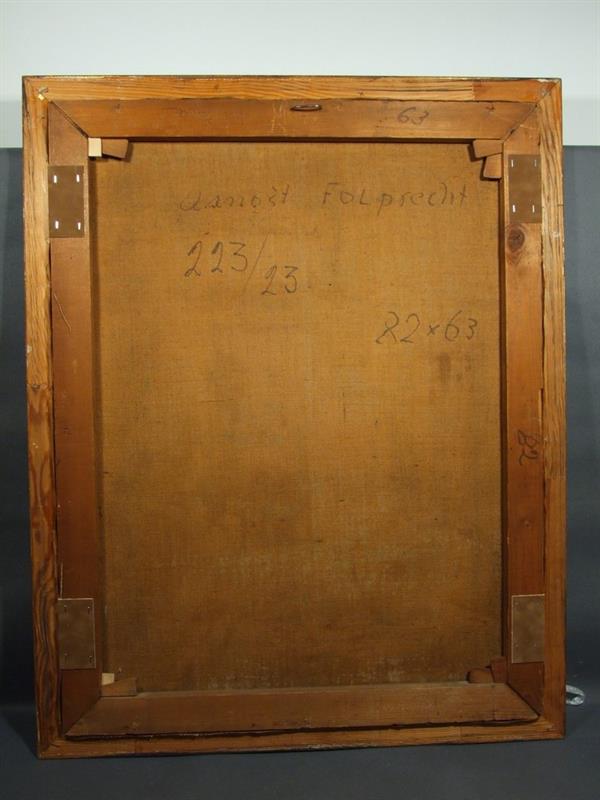 63
Arnošt FOLprecht
223/23
82×63
82